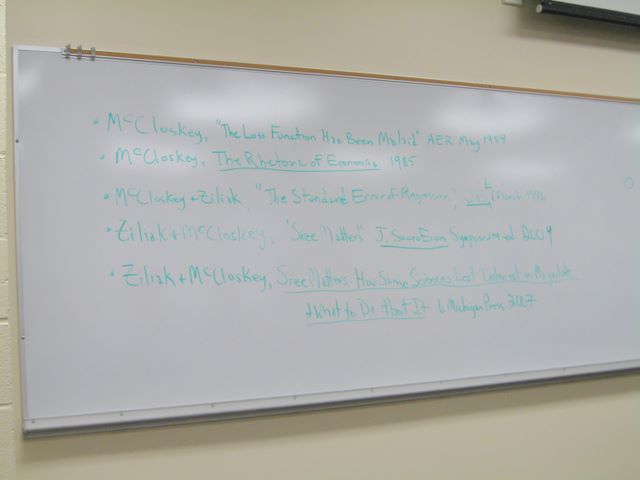 • McCloskey, "The Loss Function Has Been Mislaid" AER May 1984
• McCloskey, The Rhetoric of Economics 1985
• McCloskey + Ziliak, "The Standard Error of Regressions", JEL March 1996
• Ziliak + McCloskey, "Size Matters" J. Socio Econ Symposium
• Ziliak + McCloskey, Size Matters: How Some Sciences Lost Interest in Magnitude
+ What to Do About It U Michigan Press 2007